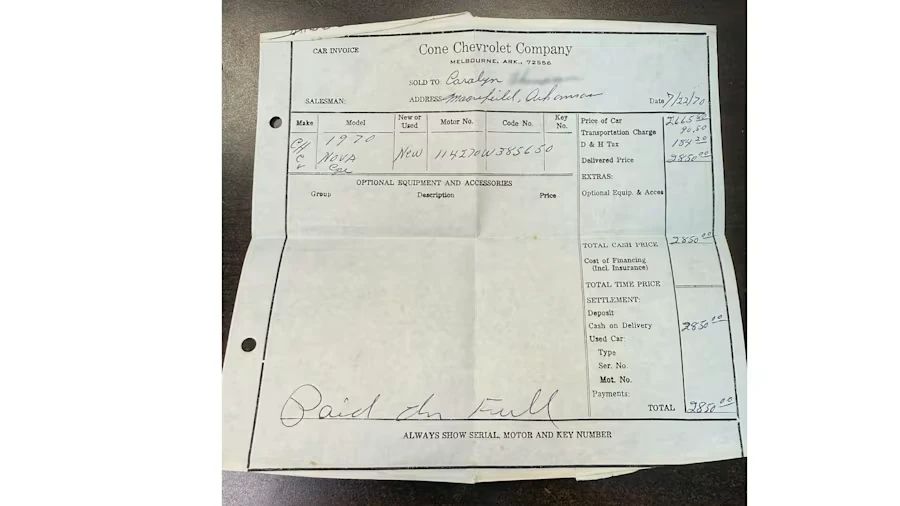 CAR INVOICE
Cone Chevrolet Company
MELBOURNE, ARK., 72556
SOLD TO: Caralyn
SALESMAN:
ADDRESS Mansfield, Arkansas
Date 7/22/70
Make Model New or Used Motor No. Code No. Key No.
Chev 1970 Nova Cpe New 114270W385650
Price of Car 2665 30
Transportation Charge 90.50
D & H Tax 184 20
Delivered Price 2850 00
OPTIONAL EQUIPMENT AND ACCESSORIES
Group Description Price
EXTRAS:
Optional Equip. & Acces
TOTAL CASH PRICE 2850 00
Cost of Financing
(Incl. Insurance)
TOTAL TIME PRICE
SETTLEMENT:
Deposit
Cash on Delivery 2850 00
Used Car:
Type
Ser. No.
Mot. No.
Payments:
TOTAL 2850 00
Paid In Full
ALWAYS SHOW SERIAL, MOTOR AND KEY NUMBER